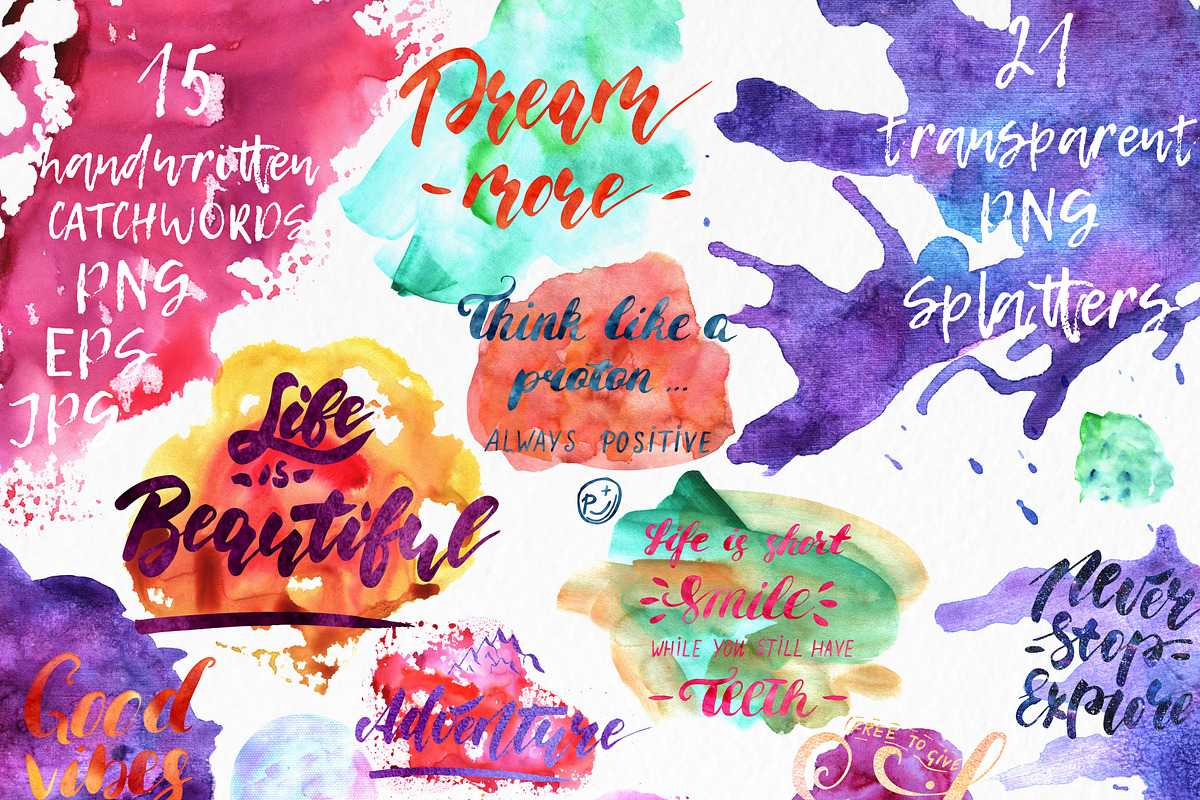 15
handwritten
CATCHWORDS
PNG
EPS
JPG
Dream
- more -
21
transparent
PNG
splatters
Think like a
proton ...
ALWAYS POSITIVE
P+
Life
- is -
Beautiful
Life is short
Smile
WHILE YOU STILL HAVE
- Teeth -
Never
- Stop -
Explore
Good
vibes
Adventure
FREE TO GIVE